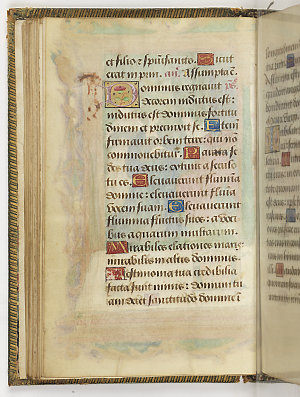 et filio: et sp̃ui sancto. Sicut
erat in prin. añ. Assumpta ẽ.
Dominus regnauit ps̃.
decorem indutus est:
indutus est dominus fortitu
dinem et precinxit se. Etẽ
firmauit orbem terre: qui nõ
commouebitur. Parata se
des tua deus: ex tunc a seculo
tu es. Eleuauerunt flumina
domine: eleuauerunt flumĩa
vocem suam. Eleuauerunt
flumina fluctus suos: a voci
bus aquarum multarum.
Mirabiles elationes maris:
mirabilis in altis dominus.
Testimonia tua credibilia
facta sunt nimis: domum tu
am decet sanctitudo domine ĩ